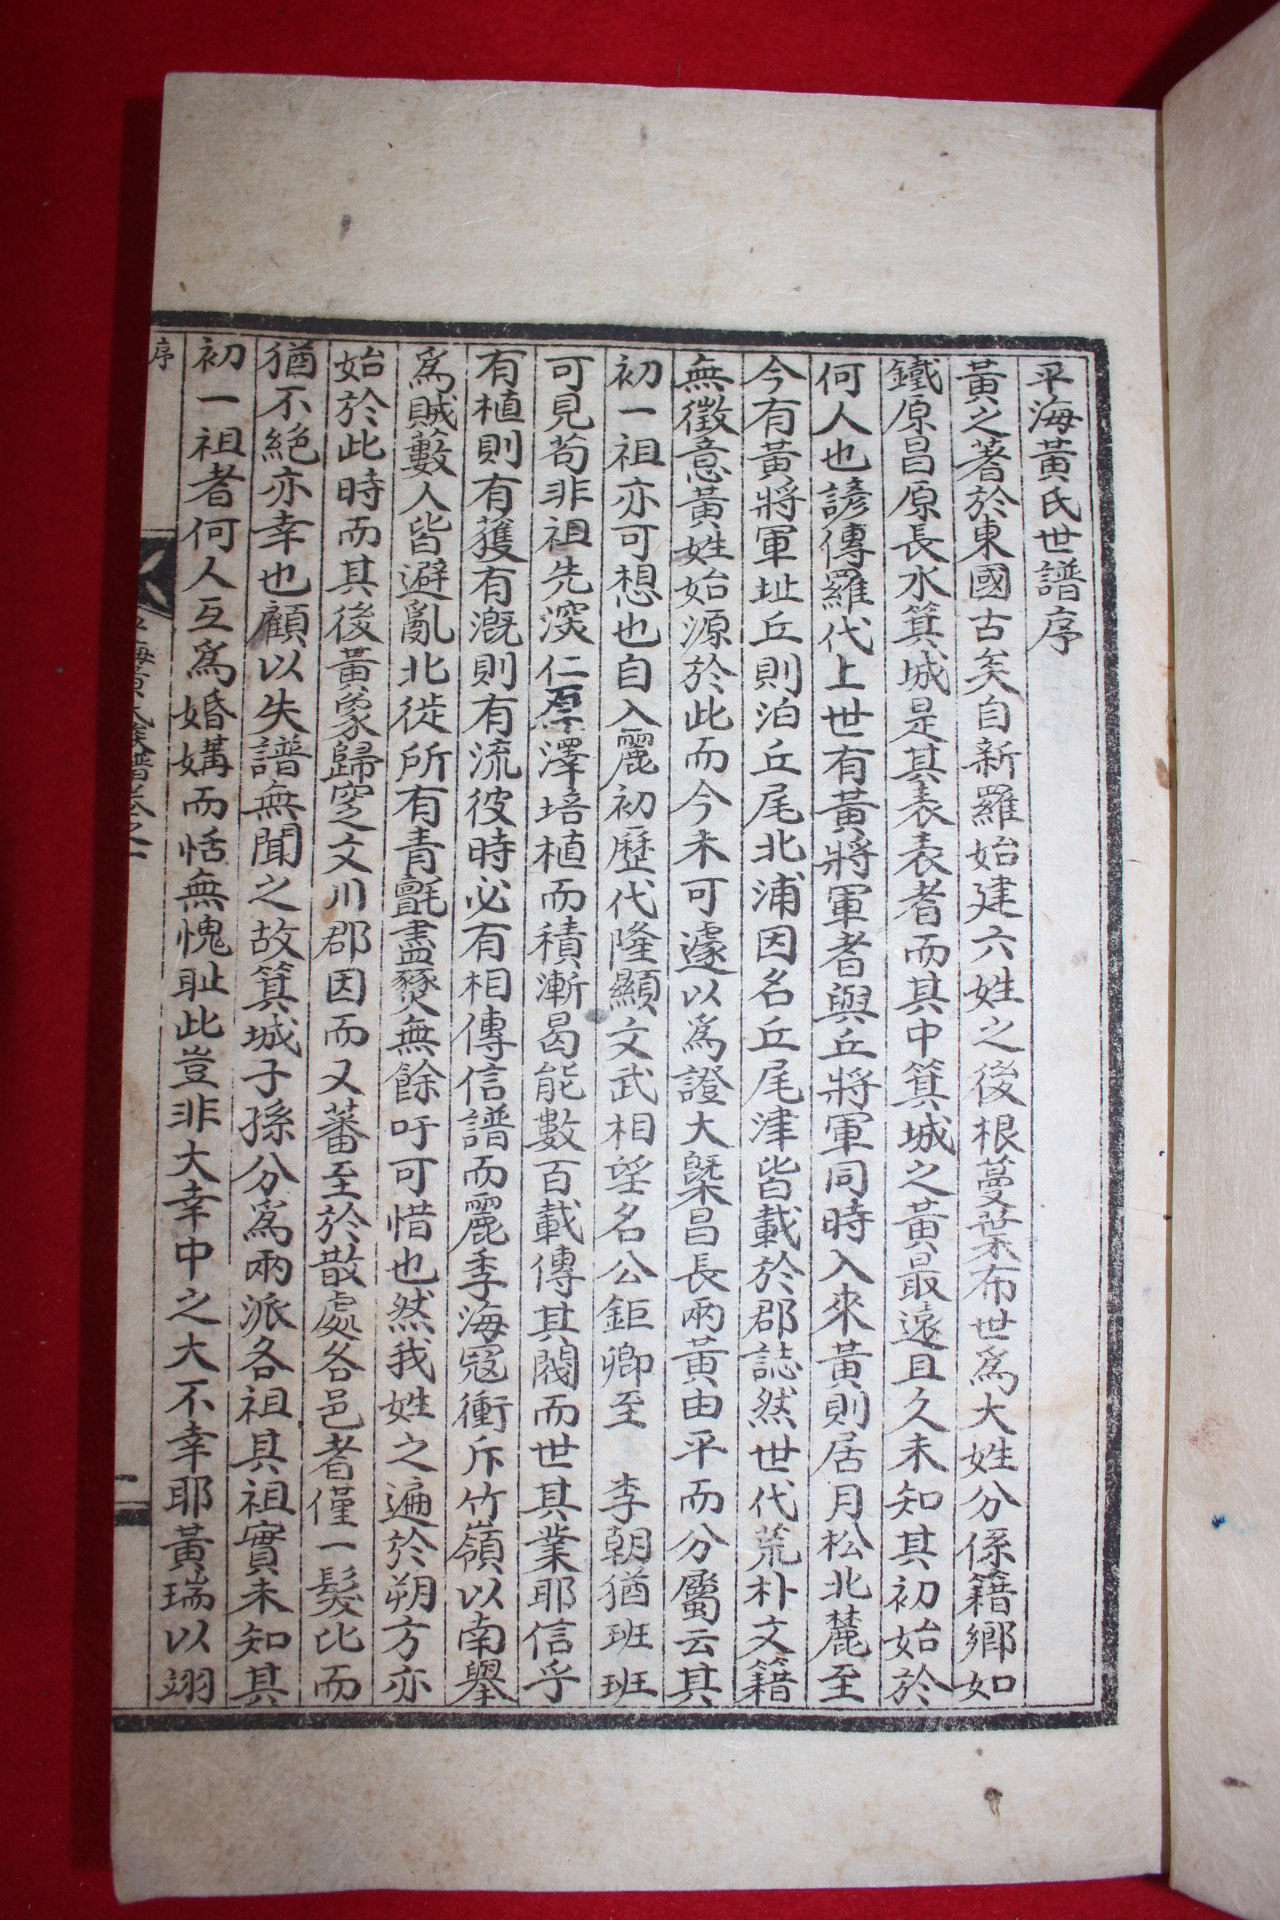 平海黃氏世譜序
黃之著於東國古矣自新羅始建六姓之後根蔓葉布世爲大姓分係籍鄕如
鐵原昌原長水箕城是其表表者而其中箕城之黃最遠且久未知其初始於
何人也諺傳羅代上世有黃將軍者與丘將軍同時入來黃則居月松北麓至
今有黃將軍址丘則泊丘尾北浦因名丘尾津皆載於郡誌然世代荒朴文籍
無徵意黃姓始源於此而今未可遽以爲證大槩昌長兩黃由平而分屬云其
初一祖亦可想也自入麗初歷代隆顯文武相望名公鉅卿至 李朝猶班班
可見苟非祖先深仁厚澤培植而積漸曷能數百載傳其閥而世其業耶信乎
有植則有獲有漑則有流彼時必有相傳信譜而麗季海寇衝斥竹嶺以南擧
爲賊藪人皆避亂北徙所有青氈盡爕無餘吁可惜也然我姓之遍於朔方亦
始於此時而其後黃象歸窆文川郡因而又蕃至於散處各邑者僅一髮比而
猶不絕亦幸也顧以失譜無聞之故箕城子孫分爲兩派各祖其祖實未知其
初一祖者何人互爲婚媾而恬無愧恥此豈非大幸中之大不幸耶黃瑞以翊
序
平海黃氏世譜卷之一
一